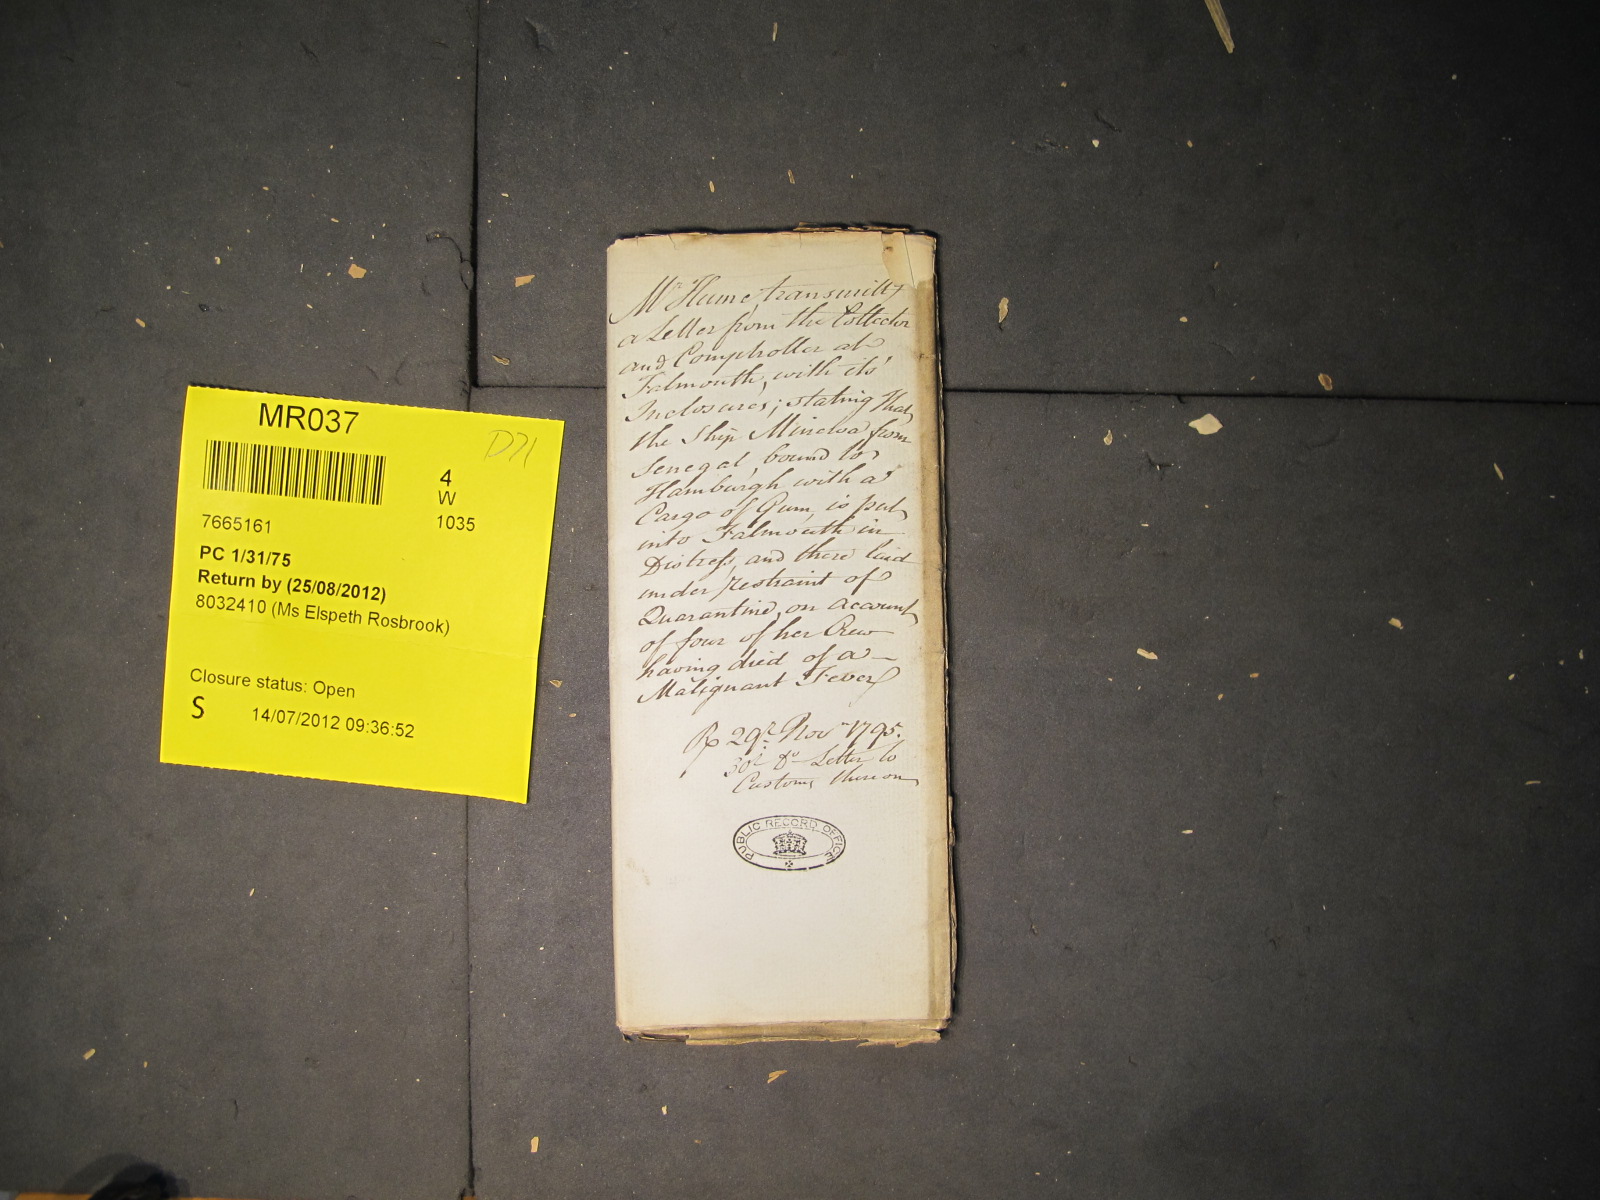 MR037
D71
4
W
1035
7665161
PC 1/31/75
Return by (25/08/2012)
8032410 (Ms Elspeth Rosbrook)
Closure status: Open
S
14/07/2012 09:36:52
Mr Hume, transmitts
a Letter from the Collector
and Comptroller at
Falmouth, with its'
Inclosures; stating that
the Ship Minerva from
Senegal, bound to
Hamburgh with a
Cargo of Gum, is put
into Falmouth in
Distress, and there laid
under restraint of
Quarantine, on account
of four of her Crew
having died of a
Malignant Fever
R 29th Novr 1795.
30th Do Letter to
Customs thereon
PUBLIC RECORD OFFICE